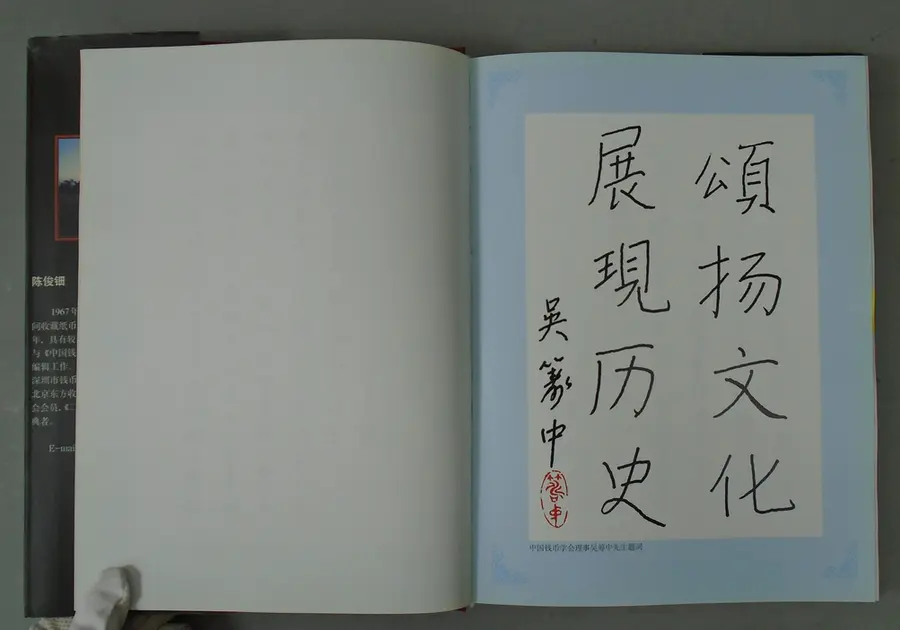 陈俊钿
1967年
问收藏纸币
年，具有较
与《中国钱
编辑工作。
深圳市钱币
北京东方收
会会员，《二
典者。
E-mai
頌扬文化
展現历史
吴筹中
中国钱币学会理事吴筹中先生题词